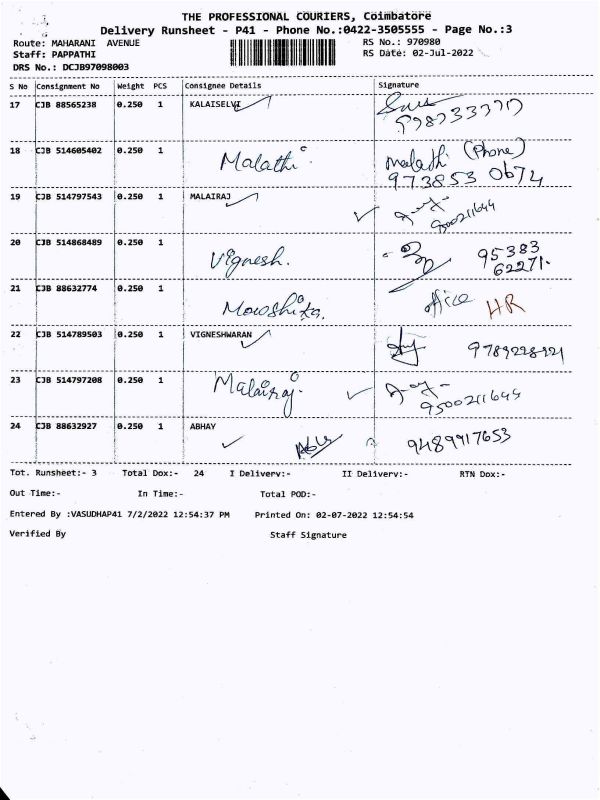 THE PROFESSIONAL COURIERS, Coimbatore
Delivery Runsheet - P41 - Phone No.:0422-3505555 - Page No.:3
Route: MAHARANI AVENUE RS No.: 970980
Staff: PAPPATHI RS Date: 02-Jul-2022
DRS No.: DCJB97098003
S No Consignment No Weight PCS Consignee Details Signature
17 CJB 88565238 0.250 1 KALAISELVI
18 CJB 514605402 0.250 1 Malathi Malathi (Phone)
973853 0674
19 CJB 514797543 0.250 1 MALAIRAJ
9500211644
20 CJB 514868489 0.250 1 Vignesh. 95383
62271.
21 CJB 88632774 0.250 1 Mowshika. office HR
22 CJB 514789503 0.250 1 VIGNESHWARAN
9789228921
23 CJB 514797208 0.250 1 Malairaj
9500211644
24 CJB 88632927 0.250 1 ABHAY
9489917653
Tot. Runsheet:- 3 Total Dox:- 24 I Delivery:- II Delivery:- RTN Dox:-
Out Time:- In Time:- Total POD:-
Entered By :VASUDHAP41 7/2/2022 12:54:37 PM Printed On: 02-07-2022 12:54:54
Verified By Staff Signature